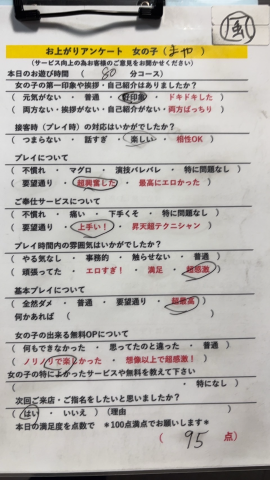 風
お上がりアンケート 女の子（まや）
(サービス向上の為お客様のご意見をお聞かせください)
本日のお遊び時間 （ 80 分コース）
女の子の第一印象や挨拶・自己紹介はありましたか？
（ 元気がない ・ 普通 ・ 好印象 ・ ドキドキした ）
（ 両方ない・挨拶がない・自己紹介がない・両方ばっちり ）
接客時（プレイ時）の対応はいかがでしたか？
（ つまらない ・ 話すぎ ・ 楽しい ・ 相性OK ）
プレイについて
（ 不慣れ ・ マグロ ・ 演技バレバレ ・ 特に問題なし ）
（ 要望通り ・ 超興奮した ・ 最高にエロかった ）
ご奉仕サービスについて
（ 不慣れ ・ 痛い ・ 下手くそ ・ 特に問題なし ）
（ 要望通り ・ 上手い！ ・ 昇天超テクニシャン ）
プレイ時間内の雰囲気はいかがでしたか？
（ やる気なし ・ 事務的 ・ 触らせない ・ 普通 ）
（ 頑張ってた ・ エロすぎ！ ・ 満足 ・ 超感激 ）
基本プレイについて
（ 全然ダメ ・ 普通 ・ 要望通り ・ 超最高 ）
何かあれば （ ）
女の子の出来る無料OPについて
（ 何もできなかった ・ 思ってたのと違った ・ 普通 ）
（ ノリノリで楽しかった ・ 想像以上で超感激！ ）
女の子の特によかったサービスや無料を教えて下さい
（ ・ 特になし ）
次回ご来店・ご指名をしたいと思いましたか？
（ はい ・ いいえ ）(理由 ）
本日の満足度を点数で ＊100点満点でお願いします＊
（ 95 点）